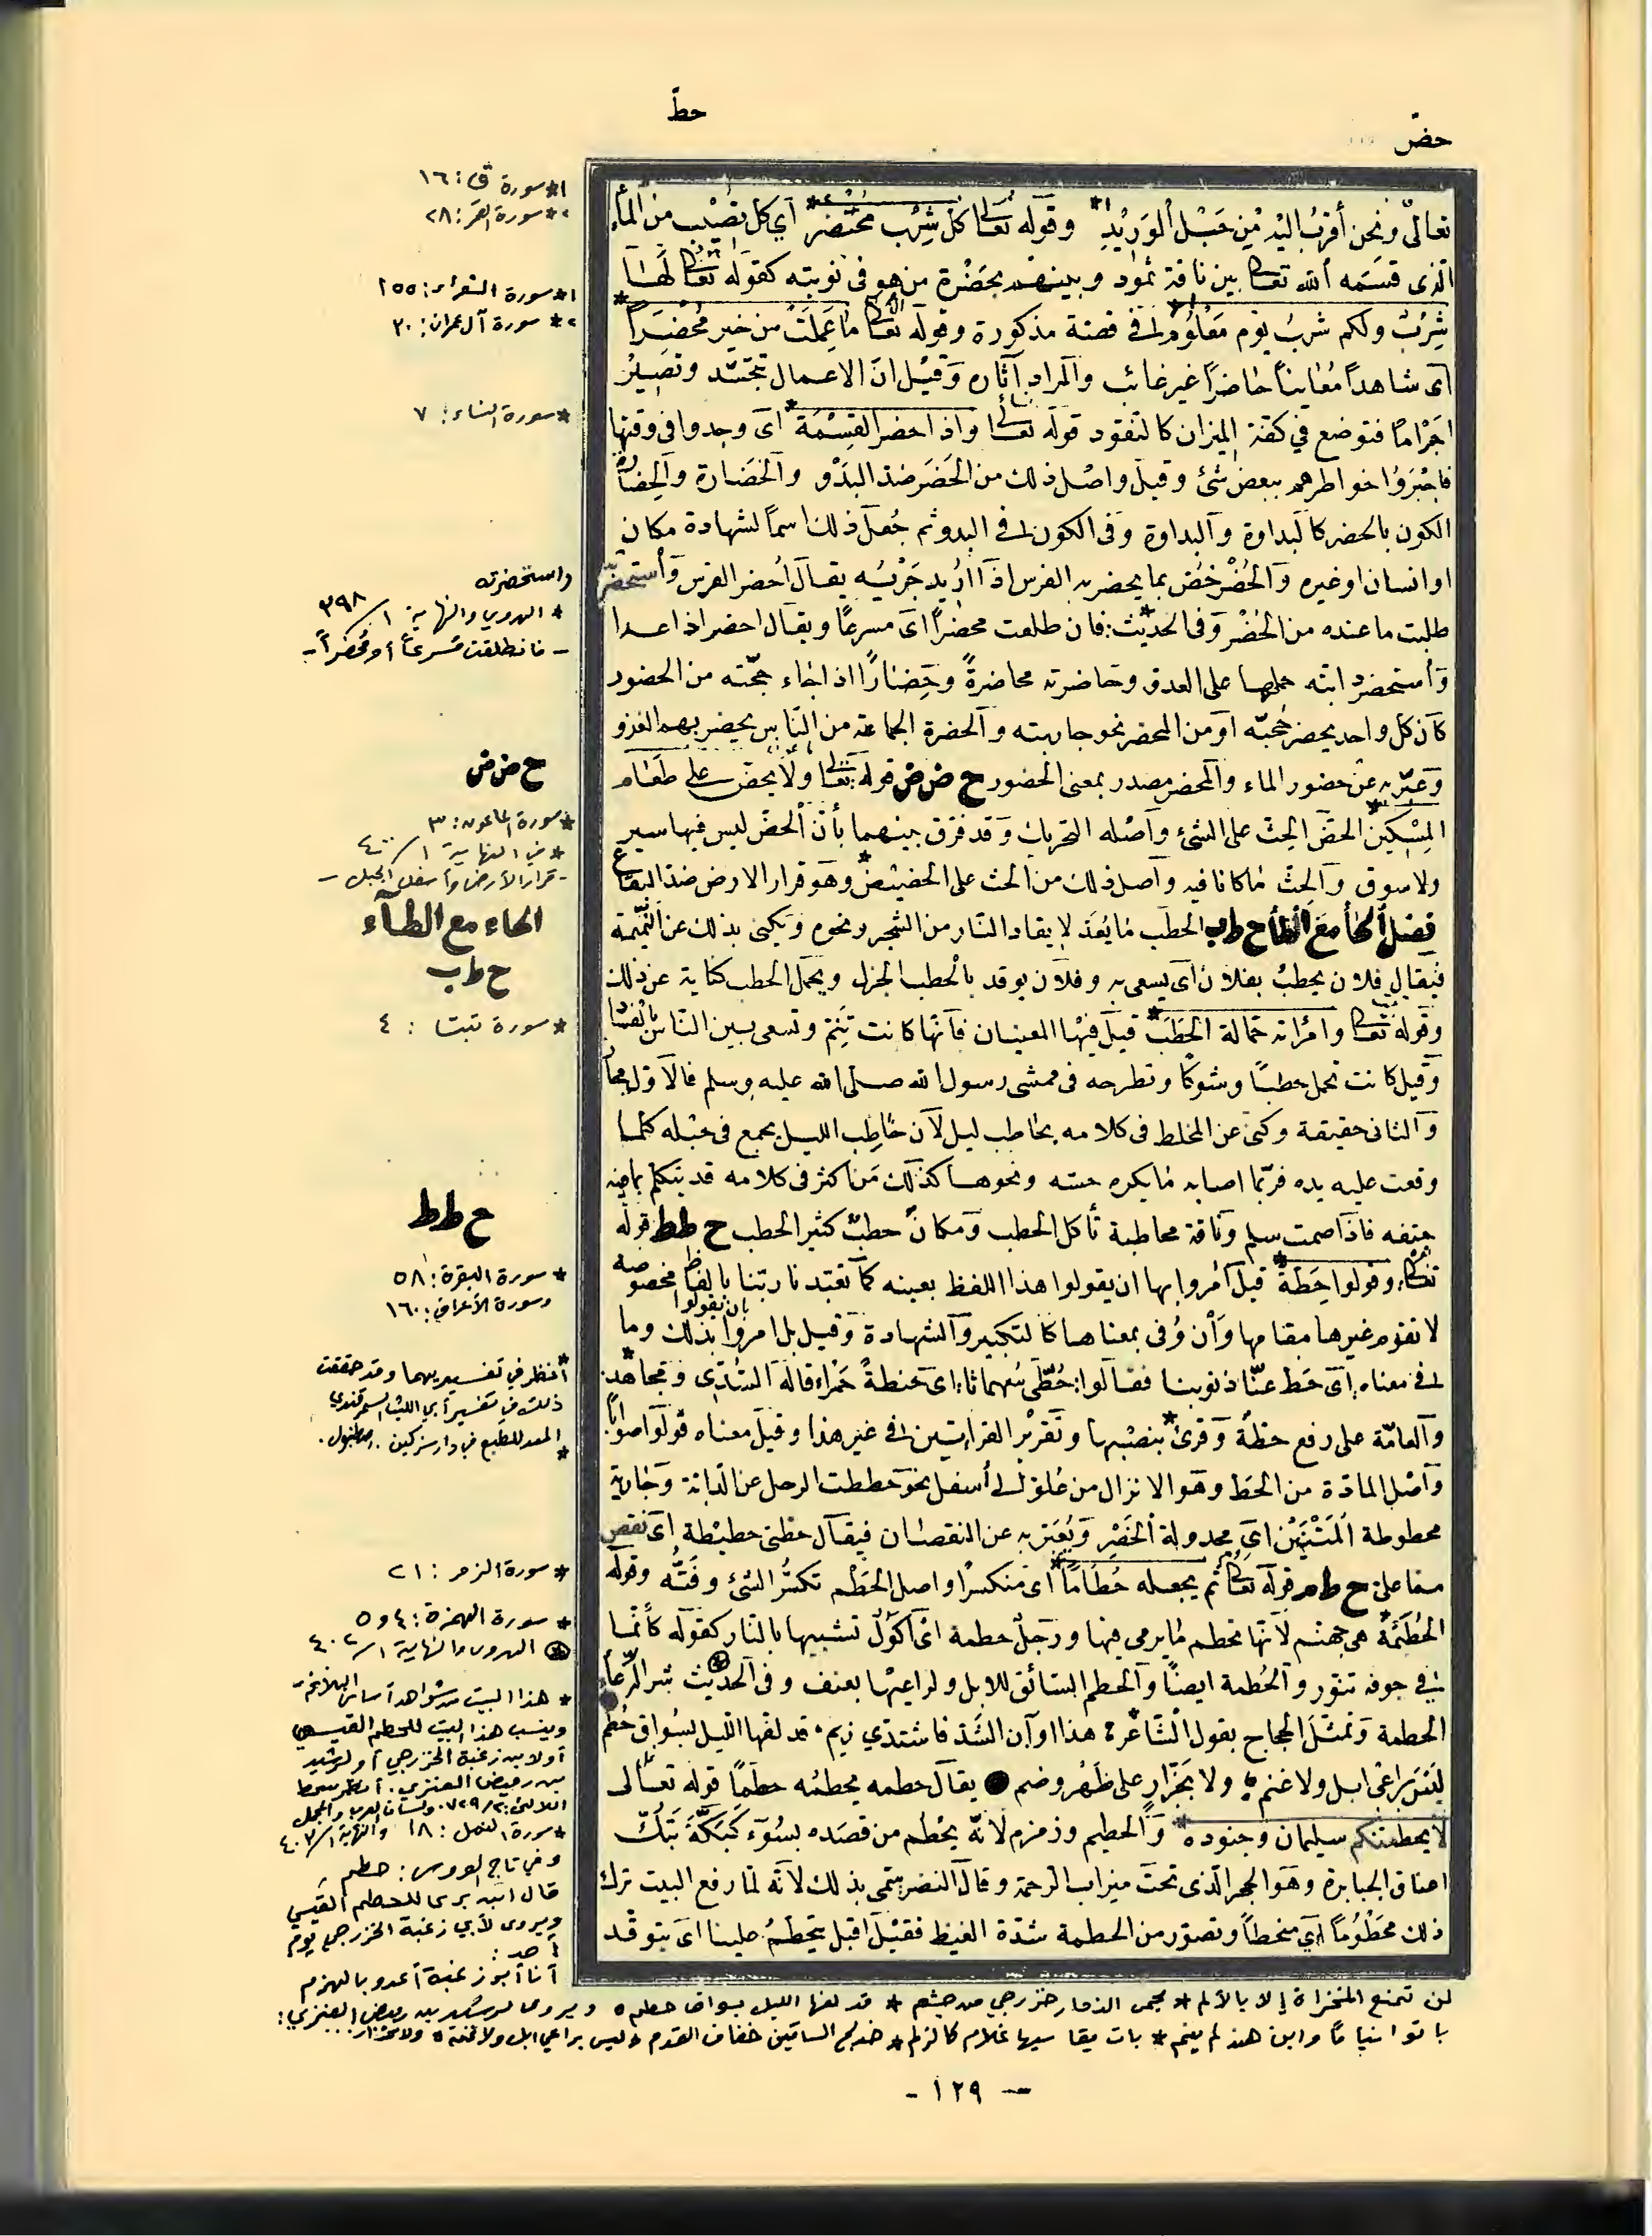 حطّ
حضّ
تعالى ونحن أقرب اليه من حبل الوريد *١ وقوله تعالى كل شِرْب مُحْتَضَر *٢ أي كل نصيب من الماء
الذى قسمه الله تعالى بين ناقة ثمود وبينهم بحَضْرة من هو فى نوبته كقوله تعالى لها
شِرْبٌ ولكم شربُ يوم مَعْلُوم *١ فى قصة مذكورة وقوله تعالى ما عَمِلَتْ من خير مُحْضَراً *٢
اى شاهداً مُعايناً حاضراً غير غائب والمراد آثاره وقيل انّ الاعمال تتجسّد وتصير
اجراماً فتوضع فى كفة الميزان كالنقود قوله تعالى واذا حضر القِسْمَة * اى وجدوا فى وقتها
فاجْبروا خواطرهم ببعض شئ وقيل واصل ذلك من الحَضَر ضدّ البَدْو والحَضارة والحِضارة
الكون بالحضر كالبَداوة والبِداوة وفى الكون فى البدو ثم جُعل ذلك اسماً لشهادة مكان
او انسان او غيره والحُضْر خُصّ بما يحضر به الفرس اذا اريد جَرْيُه يقال أحضر الفرس وأستحضرته
طلبت ما عنده من الحُضْر وفى الحديث * : فان طلعت محضراً اى مسرعاً ويقال احضر اذا عدا
وأستحضر دابته حملها على العدو وحاضرته محاضرةً وحِضاراً اذا جاء حجّته من الحضور
كان كل واحد يحضر حُجّته او من المحضر نحو جاريته والحضرة الجماعة من الناس يحضر بهم الغزو
وعبّر به عن حضور الماء والمحضر مصدر بمعنى الحضور ح ض ض قوله تعالى ولا يحض على طعام
المِسْكين * الحضّ الحثّ على الشئ وأصله التحريك وقد فرّق بينهما بأنّ الحضّ ليس فيها سير
ولا سوق والحثّ ما كانا فيه واصل ذلك من الحث على الحضيض * وهو قرار الارض ضدّ اليفاع
فصل الحاء مع الطاء ح ط ب الحطب ما يُعَدّ لايقاد النّار من الشجر ونحوه ويكنى بذلك عن النّميمة
فيقال فلان يحطبُ بفلان اى يسعى به وفلان يوقد بالحطب الجزل ويحمل الحطب كناية عن ذلك
وقوله تعالى وامرأته حمّالة الحَطَب * قيل فيها المعنيان فانّها كانت تنمّ وتسعى بين النّاس بالفساد
وقيل كانت تحمل حطباً وشوكاً وتطرحه فى ممشى رسول الله صلى الله عليه وسلم فالاوّل مجاز
والثانى حقيقة وكنى عن المخلط فى كلامه بحاطب ليل لان حاطِب الليل يجمع فى حبله كلّما
وقعت عليه يده فربّما اصابه ما يكره حسّه ونحوها كذلك مَن اكثر فى كلامه قد يتكلم بما فيه
حتفه فاذا صمت سلم وناقة محاطبة تأكل الحطب ومكان حطبٌ كثير الحطب ح ط ط قوله
تعالى وقولوا حِطّةٌ * قيل أمروا بها ان يقولوا هذا اللفظ بعينه كما تعبّدنا ربّنا بالفاظ مخصوصة
لا تقوم غيرها مقامها وأن وُفى بمعناها كالتكبير والشهادة وقيل بل امروا بان يقولوا بذلك وما
فى معناه اى حُطّ عنّا ذنوبنا فقالوا: حُطّى سُهماثا: اى حنطةً حَمْراء قاله السُّدّى ومجاهد *
والعامّة على رفع حطّة وقرئ * بنصبها وتقرير القراءتين فى غير هذا وقيل معناه قولوا صواباً
وأصل المادّة من الحَط وهو الانزال من عُلوّ الى أسفل نحو حططت الرحل عن الدّابة وجارية
محطوطة المَتْنَيْن اى مجدولة الخَصْر ويُعبّر به عن النقصان فيقال حطنى حطيطة اى نقص
مما علىّ ح ط م قوله تعالى ثم يجعله حُطَاماً * اى منكسراً واصل الحَطْم تكسُّر الشئ وفَتُّه وقوله
الحُطَمَةُ * هى جهنم لانّها تحطم ما يرمى فيها ورَجُلٌ حطمة اى أكولٌ تشبيها بالنّار كقوله كأنّما
فى جوفه تنّور والحُطمة ايضاً والحطم السّائق للابل ولراعيها بعنف وفى الحديث شر الرِّعاء
الحطمة وتمثّل الحجاج بقول الشّاعر * هذا اوان الشَدّ فاشتدّي زيم * قد لفها الليل بسَوّاق حُطَم
ليس براعى ابل ولا غنم * ولا بجَزّارٍ على ظَهْر وضم يقال حطمه يحطمُه حطماً قوله تعالى
لا يحطمنّكم سليمان وجنوده * والحطيم وزمزم لانّه يحْطِم من قصده بسُوء كَبَكّة تبكّ
اعناق الجبابرة وهو الحجر الّذى تحت ميزاب الرحمة وقال النضر سمّى بذلك لانّه لمّا رفع البيت ترك
ذلك مَحْطُوماً اى منحطاً وتصوّر من الحطمة شدّة الغيظ فقيل اقبل يتحطّمُ علينا اى يتوقّد
*١ سورة ق: ١٦
*٢ سورة القمر: ٢٨
*١ سورة الشعراء: ١٥٥
*٢ سورة آل عمران: ٣٠
* سورة النساء: ٧
واستحضرته
* الهروي والنهاية ١/ ٣٩٨
- فانطلقت مُسرعاً أو مُحضِراً -
ح ض ض
* سورة الماعون: ٣
* في النهاية ١/ ٤٠٠
- قرار الأرض وأسفل الجبل -
الحاء مع الطاء
ح ط ب
* سورة تبت : ٤
ح ط ط
* سورة البقرة: ٥٨
وسورة الأعراف: ١٦٠
* أنظر في تفسيريهما وقد حققت
ذلك في تفسير أبي الليث السمرقندي
المعد للطبع في دار سزكين . إصطنبول .
*
* سورة الزمر : ٢١
* سورة الهمزة: ٤ و ٥
⊛ الهروي والنهاية ١/ ٤٠٢
* هذا البيت من شواهد أساس البلاغة -
وينسب هذا البيت للحطم القيسي
أو لابن زغبة الخزرجي أو لرشيد
بن رميض العنزي . أنظر سمط
اللآلئ: ٢/ ٧٢٩ ولسان العرب والمجمل
* سورة النمل: ١٨ والنهاية ١/ ٤٠٢
وفي تاج العروس : حطم
قال ابن بري للحطم القيسي
ويروى لأبي زغبة الخزرجي يوم
أحد :
أنا أبو زغبة أعدو بالهزم
لن تمنع المخزاة إلا بالألم * يحمى الذمار خزرجي من جشم * قد لفها الليل بسواق حطم * ويروى لرشيد بن رميض العنزي :
باتوا نياماً وابن هند لم ينم * بات يقاسيها غلام كالزلم * خدلج الساقين خفاق القدم * ليس براعي ابل ولا غنم * ولا بجزار ...
- ١٢٩ -